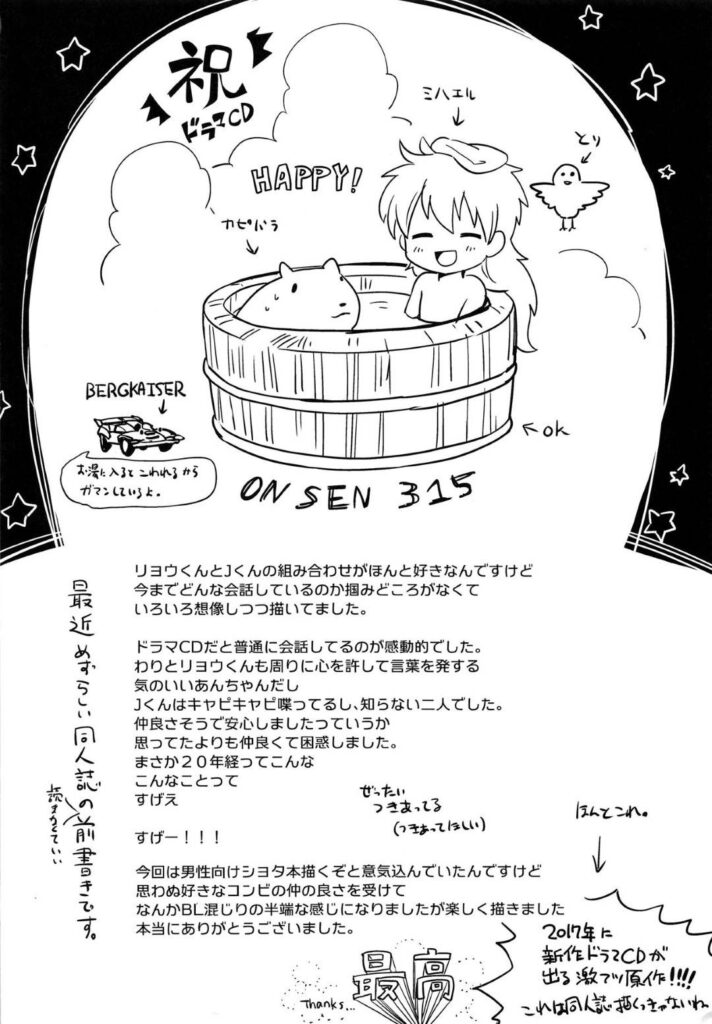 祝
ドラマCD
HAPPY!
ミハエル
とり
カピバラ
BERGKAISER
お湯に入るとこわれるから
ガマンしているよ。
OK
ONSEN 315
最近めずらしい同人誌の前書きです。
読まなくていい
リョウくんとJくんの組み合わせがほんと好きなんですけど
今までどんな会話しているのか掴みどころがなくて
いろいろ想像しつつ描いてました。
ドラマCDだと普通に会話してるのが感動的でした。
わりとリョウくんも周りに心を許して言葉を発する
気のいいあんちゃんだし
Jくんはキャピキャピ喋ってるし、知らない二人でした。
仲良さそうで安心しましたっていうか
思ってたよりも仲良くて困惑しました。
まさか２０年経ってこんな
こんなことって
すげえ
すげー！！！
ぜったい
つきあってる
(つきあってほしい)
ほんとこれ。
今回は男性向けショタ本描くぞと意気込んでいたんですけど
思わぬ好きなコンビの仲の良さを受けて
なんかBL混じりの半端な感じになりましたが楽しく描きました
本当にありがとうございました。
Thanks...
最高
2017年に
新作ドラマCDが
出る激アツ原作!!!!
これは同人誌描くっきゃないわ。